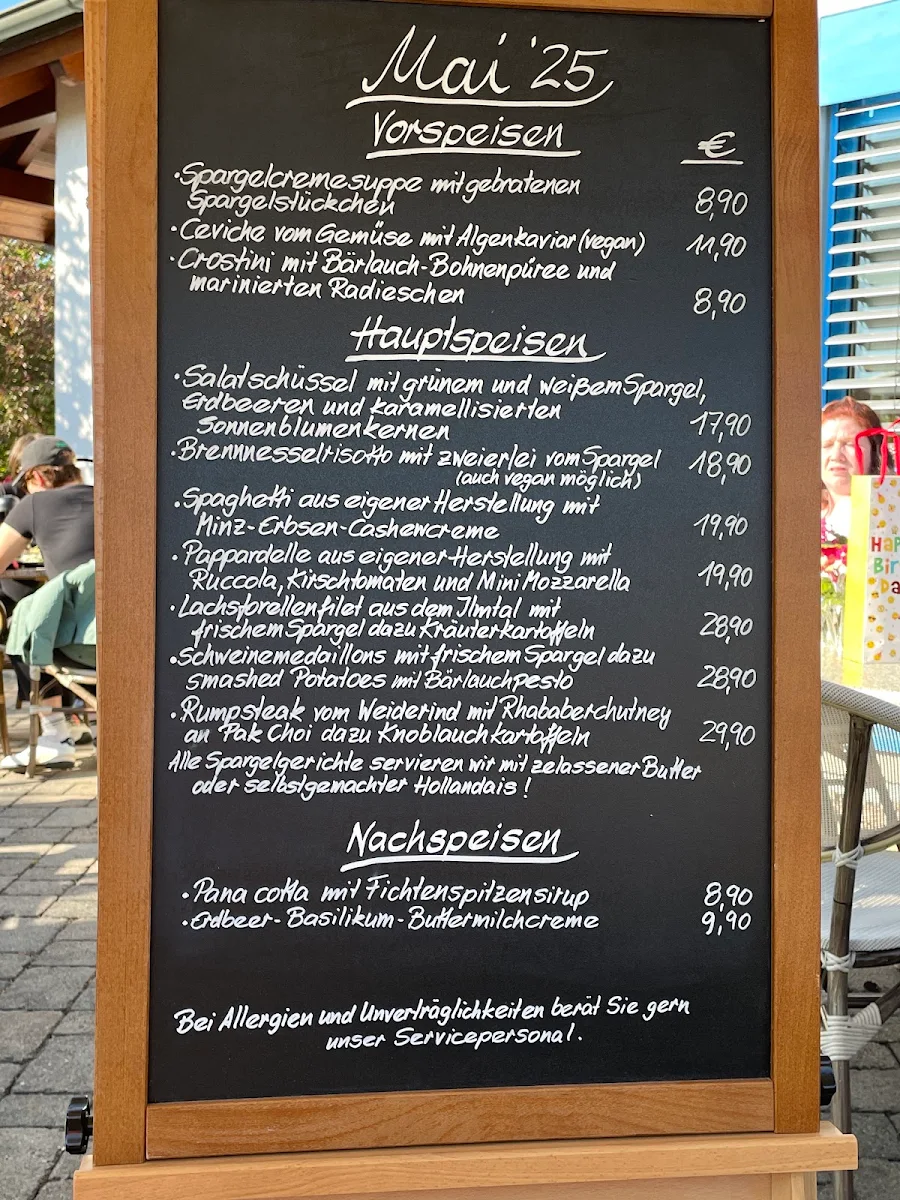 Mai '25
Vorspeisen
€
·Spargelcremesuppe mit gebratenen
Spargelstückchen 8,90
·Ceviche vom Gemüse mit Algenkaviar (vegan) 11,90
·Crostini mit Bärlauch-Bohnenpúree und
marinierten Radieschen 8,90
Hauptspeisen
·Salatschüssel mit grünem und weißem Spargel,
Erdbeeren und karamellisierten
Sonnenblumenkernen 17,90
·Brennnesselrisotto mit zweierlei vom Spargel 18,90
(auch vegan möglich)
·Spaghetti aus eigener Herstellung mit
Minz-Erbsen-Cashewcreme 19,90
·Pappardelle aus eigener Herstellung mit
Ruccola, Kirschtomaten und Mini Mozzarella 19,90
·Lachsforellenfilet aus dem Ilmtal mit
frischem Spargel dazu Kräuterkartoffeln 28,90
·Schweinemedaillons mit frischem Spargel dazu
smashed Potatoes mit Bärlauchpesto 28,90
·Rumpsteak vom Weiderind mit Rhababerchutney
an Pak Choi dazu Knoblauchkartoffeln 29,90
Alle Spargelgerichte servieren wir mit zelassener Butter
oder selbstgemachter Hollandais!
Nachspeisen
·Pana cotta mit Fichtenspitzensirup 8,90
·Erdbeer-Basilikum-Buttermilchcreme 9,90
Bei Allergien und Unverträglichkeiten berät Sie gern
unser Servicepersonal.